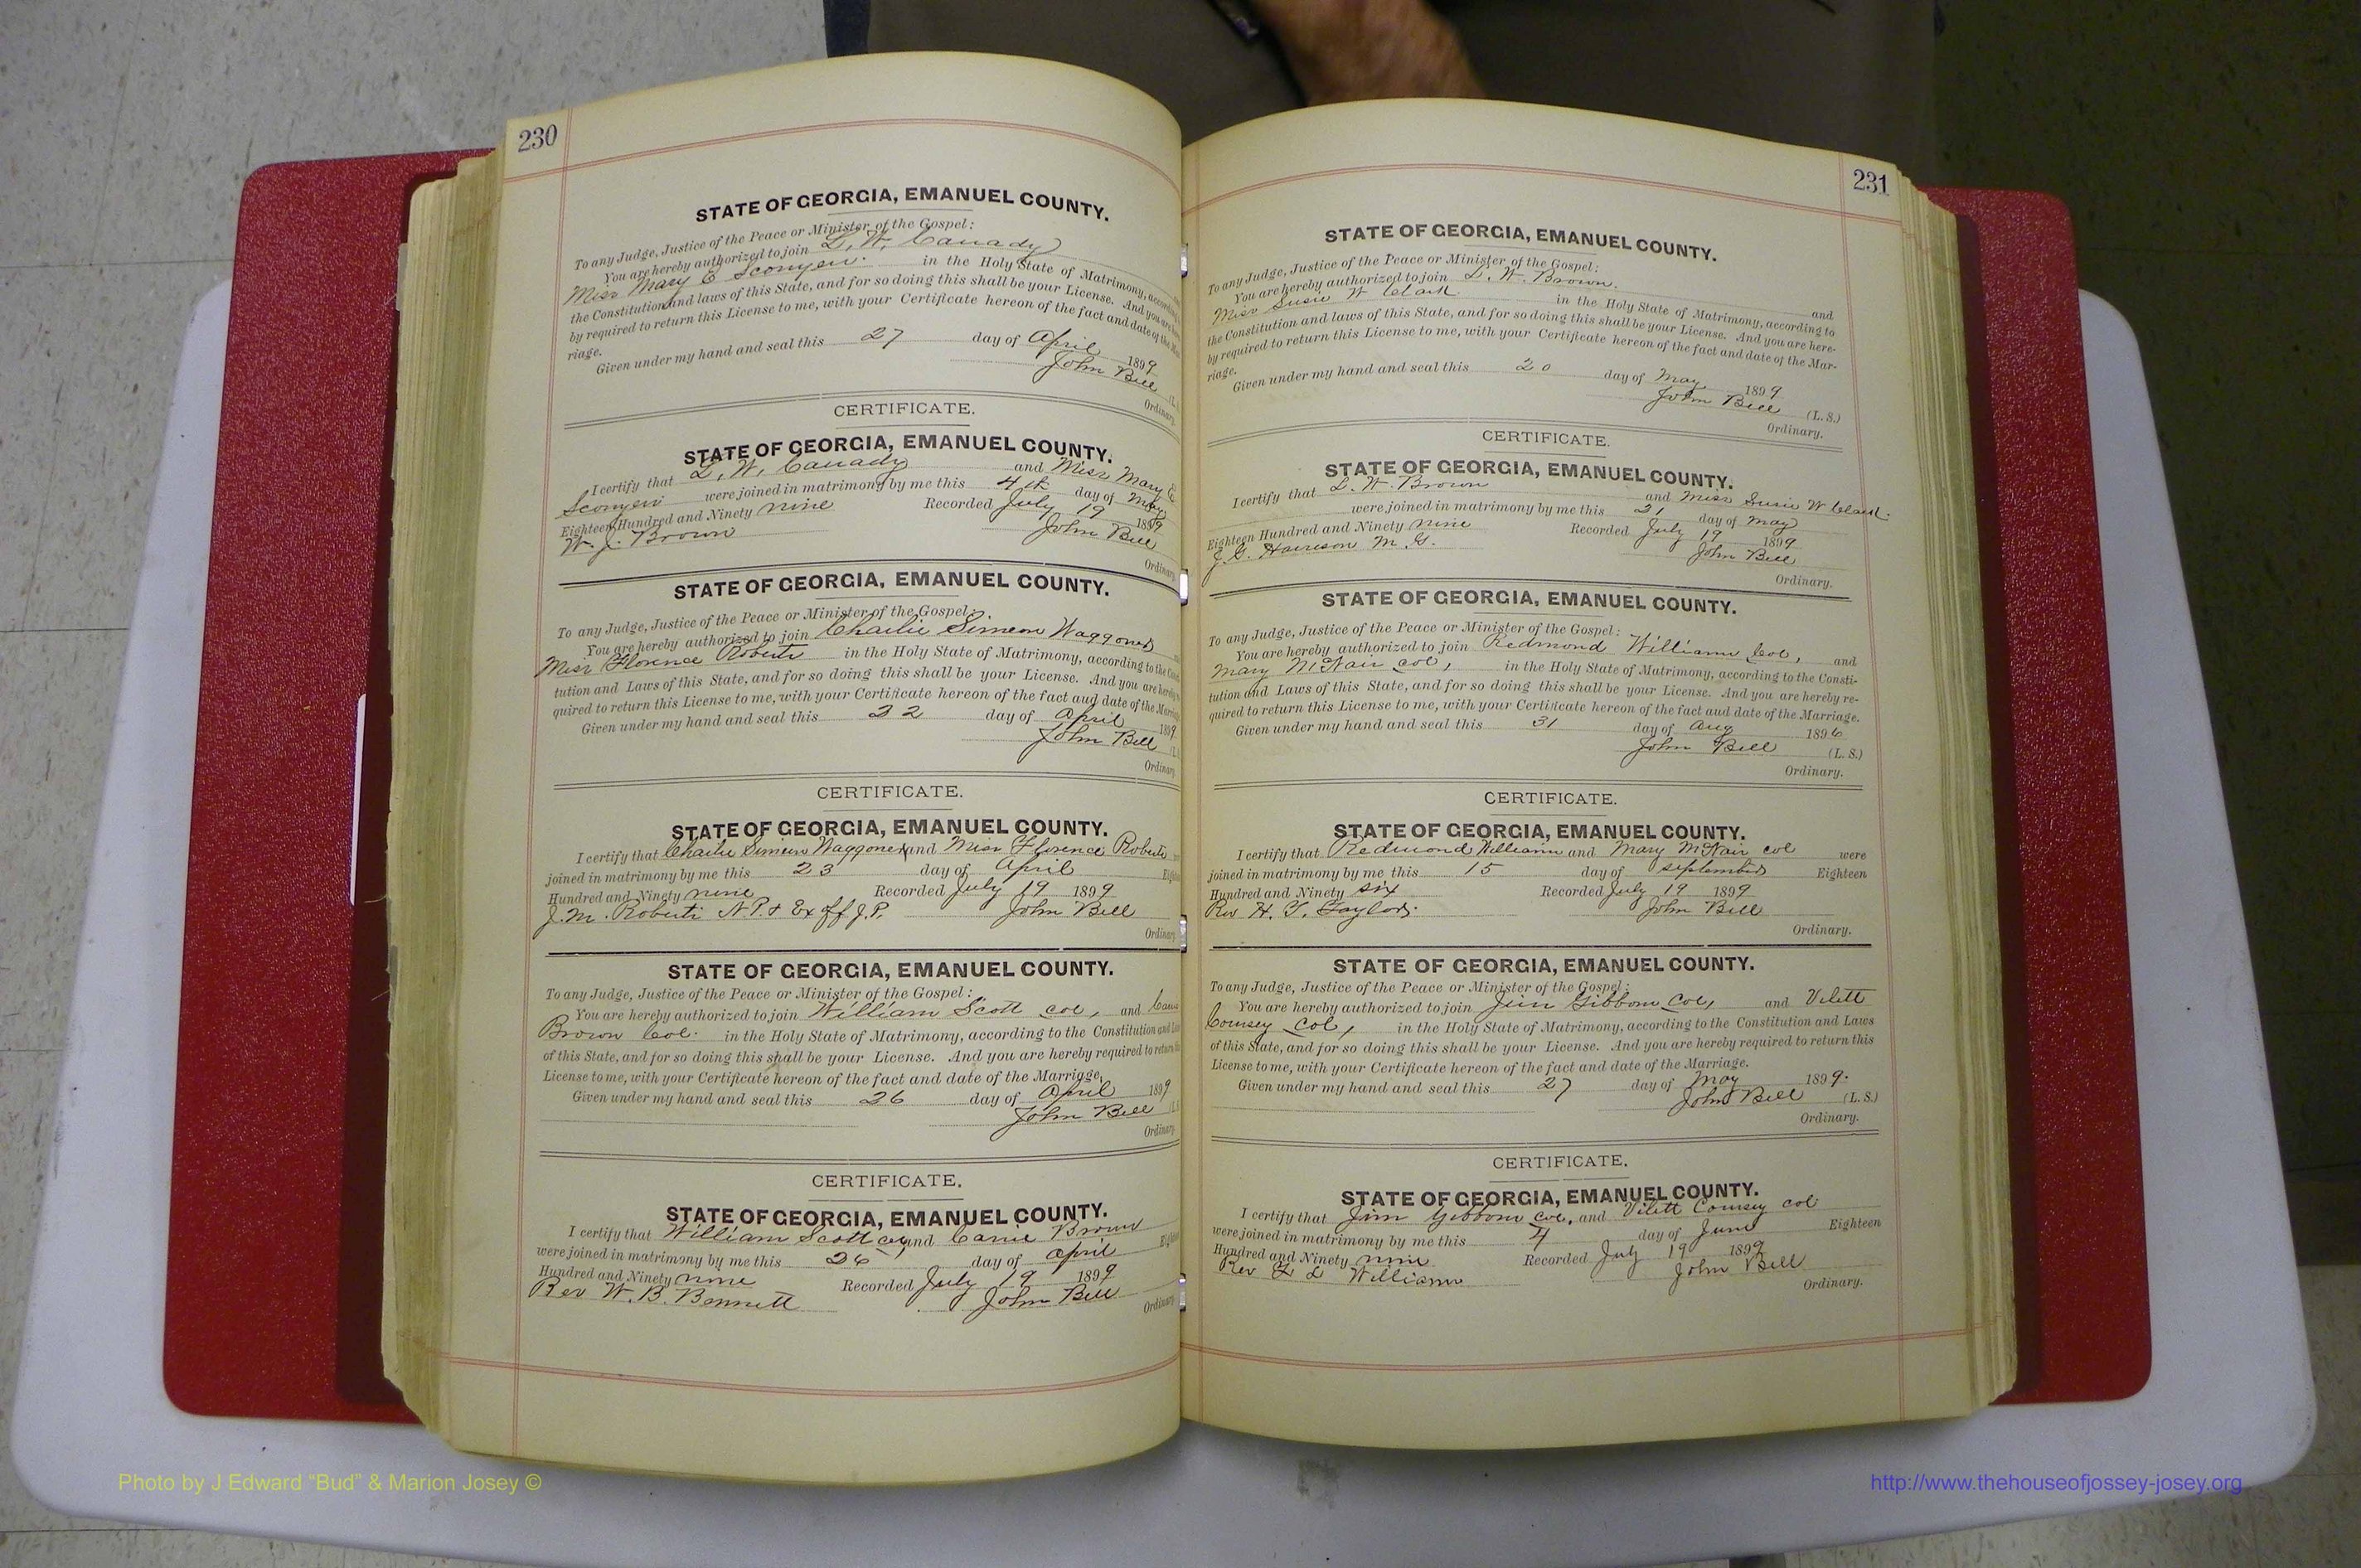 230
STATE OF GEORGIA, EMANUEL COUNTY.
To any Judge, Justice of the Peace or Minister of the Gospel:
You are hereby authorized to join L. W. Canady
Miss Mary E Sconyers. in the Holy State of Matrimony, according
the Constitution and laws of this State, and for so doing this shall be your License. And you are here
by required to return this License to me, with your Certificate hereon of the fact and date of the
riage.
Given under my hand and seal this 27 day of April 1899
John Bell
Ordinary.
CERTIFICATE.
STATE OF GEORGIA, EMANUEL COUNTY.
I certify that L. W. Canady and Miss Mary E
Sconyers were joined in matrimony by me this 4th day of May
Eighteen Hundred and Ninety nine Recorded July 19 1899
W. J. Brown John Bell
Ordinary.
STATE OF GEORGIA, EMANUEL COUNTY.
To any Judge, Justice of the Peace or Minister of the Gospel:
You are hereby authorized to join Charlie Simeon Waggoner
Miss Florence Roberts in the Holy State of Matrimony, according to the
tution and Laws of this State, and for so doing this shall be your License. And you are hereby
quired to return this License to me, with your Certificate hereon of the fact and date of the
Given under my hand and seal this 22 day of April 1899
John Bell
Ordinary
CERTIFICATE.
STATE OF GEORGIA, EMANUEL COUNTY.
I certify that Charlie Simeon Waggoner and Miss Florence Roberts
joined in matrimony by me this 23 day of April
Hundred and Ninety nine Recorded July 19 1899
J. M. Roberts N.P. & Ex off J.P. John Bell
Ordinary.
STATE OF GEORGIA, EMANUEL COUNTY.
To any Judge, Justice of the Peace or Minister of the Gospel:
You are hereby authorized to join William Scott col, and
Brown Col. in the Holy State of Matrimony, according to the Constitution and
of this State, and for so doing this shall be your License. And you are hereby required to return
License to me, with your Certificate hereon of the fact and date of the Marriage.
Given under my hand and seal this 26 day of April 1899
John Bell
Ordinary
CERTIFICATE.
STATE OF GEORGIA, EMANUEL COUNTY.
I certify that William Scott col and Carrie Brown
were joined in matrimony by me this 26 day of April
Hundred and Ninety nine Recorded July 19 1899
Rev W. B. Bennett John Bell
Ordinary
231
STATE OF GEORGIA, EMANUEL COUNTY.
To any Judge, Justice of the Peace or Minister of the Gospel:
You are hereby authorized to join L. W. Brown. and
Miss Susie W Clark in the Holy State of Matrimony, according to
the Constitution and laws of this State, and for so doing this shall be your License. And you are here-
by required to return this License to me, with your Certificate hereon of the fact and date of the Mar-
riage.
Given under my hand and seal this 20 day of May 1899
John Bell (L. S.)
Ordinary.
CERTIFICATE.
STATE OF GEORGIA, EMANUEL COUNTY.
I certify that L. W. Brown and Miss Susie W Clark
were joined in matrimony by me this 21 day of May
Eighteen Hundred and Ninety nine Recorded July 19 1899
Harrison M. G. John Bell
Ordinary.
STATE OF GEORGIA, EMANUEL COUNTY.
To any Judge, Justice of the Peace or Minister of the Gospel:
You are hereby authorized to join Redmond Williams Col, and
Mary McNair col, in the Holy State of Matrimony, according to the Consti-
tution and Laws of this State, and for so doing this shall be your License. And you are hereby re-
quired to return this License to me, with your Certificate hereon of the fact and date of the Marriage.
Given under my hand and seal this 31 day of Aug 1896
John Bell (L. S.)
Ordinary.
CERTIFICATE.
STATE OF GEORGIA, EMANUEL COUNTY.
I certify that Redmond Williams and Mary McNair col were
joined in matrimony by me this 15 day of September Eighteen
Hundred and Ninety six Recorded July 19 1899
Rev H. T. Taylor. John Bell
Ordinary.
STATE OF GEORGIA, EMANUEL COUNTY.
To any Judge, Justice of the Peace or Minister of the Gospel:
You are hereby authorized to join Jim Gibbons Col, and Vilett
Coursey Col, in the Holy State of Matrimony, according to the Constitution and Laws
of this State, and for so doing this shall be your License. And you are hereby required to return this
License to me, with your Certificate hereon of the fact and date of the Marriage.
Given under my hand and seal this 27 day of May 1899.
John Bell (L. S.)
Ordinary.
CERTIFICATE.
STATE OF GEORGIA, EMANUEL COUNTY.
I certify that Jim Gibbons Col, and Vilett Coursey col
were joined in matrimony by me this 4 day of June Eighteen
Hundred and Ninety nine Recorded July 19 1899
Rev Williams John Bell
Ordinary.
Photo by J Edward "Bud" & Marion Josey ©
http://www.thehouseofjossey-josey.org